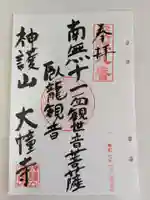 奉拝
南無十一面観世音菩薩
臥龍観音
神護山 大幢寺